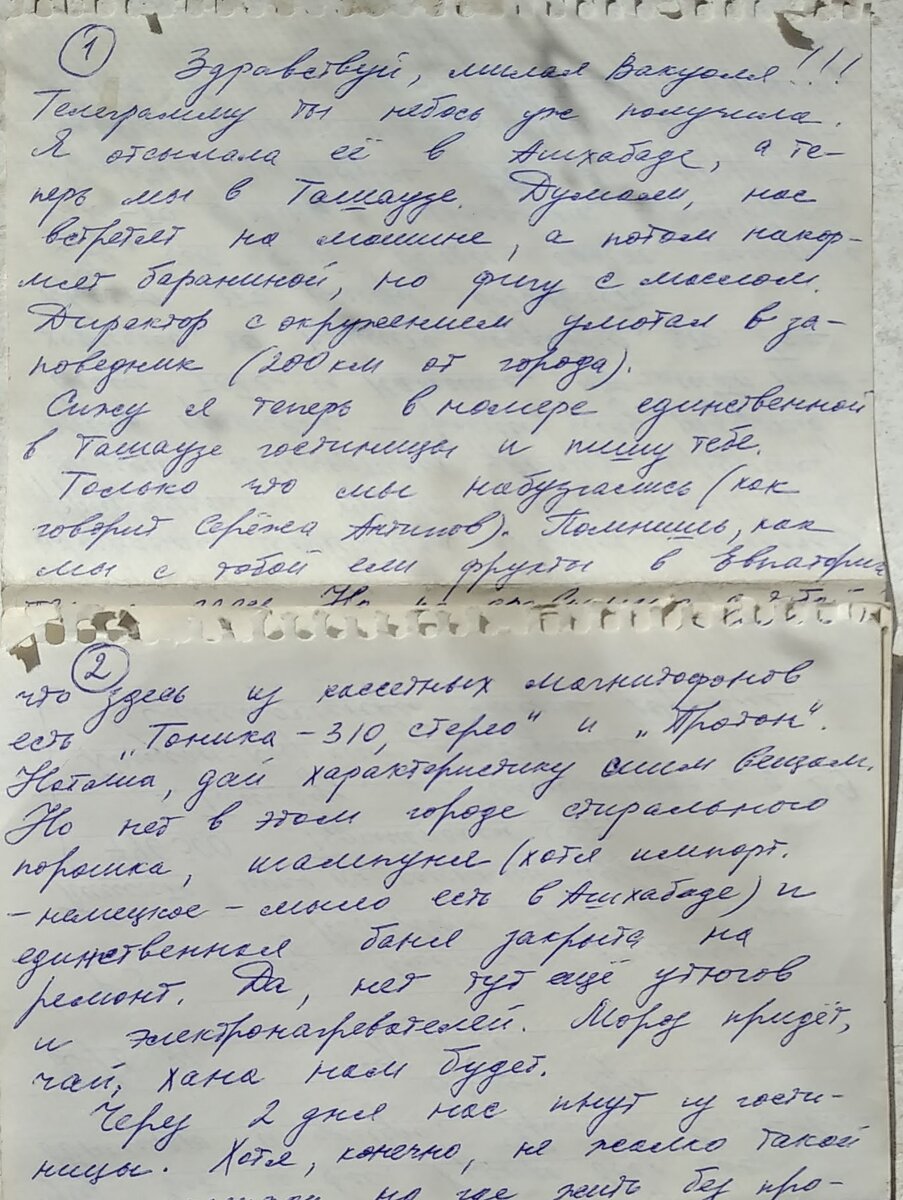 1
Здравствуй, милая Вакуоля!!!
Телеграмму ты небось уж получила.
Я отсылала её в Ашхабаде, а те-
перь мы в Ташаузе. Думали, нас
встретят на машине, а потом накор-
мят бараниной, но фигу с маслом.
Директор с окружением умотал в за-
поведник (200 км от города).
Сижу я теперь в номере единственной
в Ташаузе гостиницы и пишу тебе.
Только что мы набузгались (как
говорит Серёжа Антипов). Помнишь, как
мы с тобой ели фрукты в Евпатории
2
что здесь из кассетных магнитофонов
есть „Тоника-310, стерео" и „Протон".
Наташа, дай характеристику сим вещам.
Но нет в этом городе стирального
порошка, шампуня (хотя импорт.
-немецкое - мыло есть в Ашхабаде) и
единственная баня закрыта на
ремонт. Да, нет тут ещё утюгов
и электронагревателей. Мороз придёт,
чай, хана нам будет.
Через 2 дня нас пнут из гости-
ницы. Хотя, конечно, не жалко такой
но где жить без про-